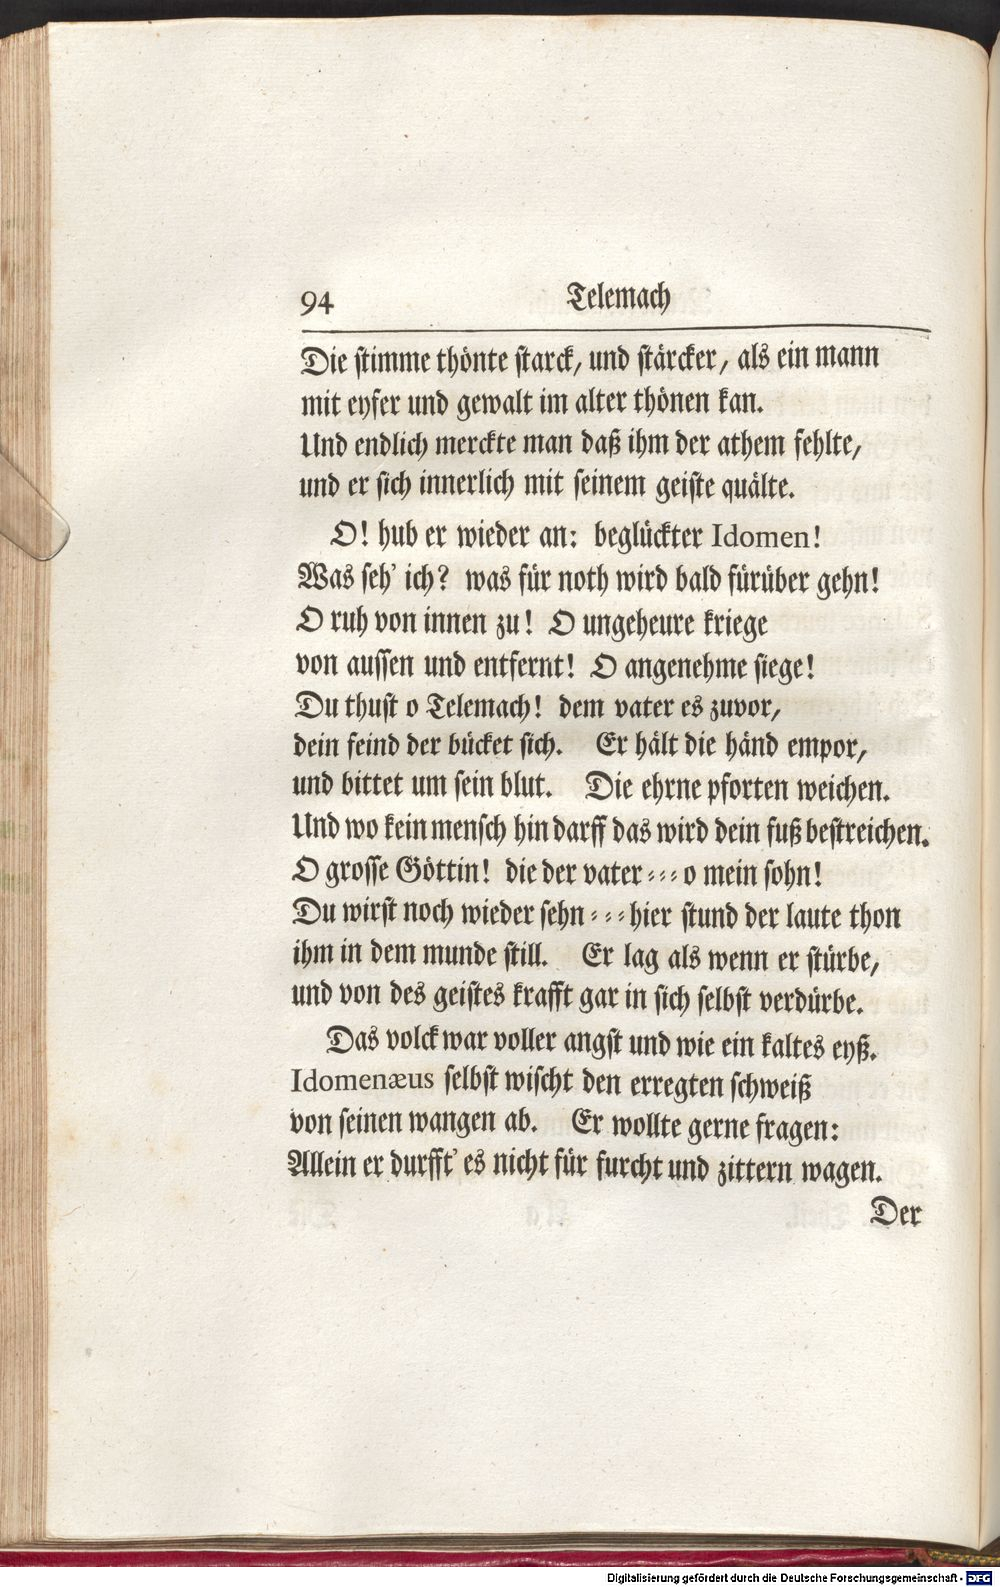 94 Telemach
Die stimme thönte starck, und stärcker, als ein mann
mit eyfer und gewalt im alter thönen kan.
Und endlich merckte man daß ihm der athem fehlte,
und er sich innerlich mit seinem geiste quälte.
O! hub er wieder an: beglückter Idomen!
Was seh' ich? was für noth wird bald fürüber gehn!
O ruh von innen zu! O ungeheure kriege
von aussen und entfernt! O angenehme siege!
Du thust o Telemach! dem vater es zuvor,
dein feind der bücket sich. Er hält die händ empor,
und bittet um sein blut. Die ehrne pforten weichen.
Und wo kein mensch hin darff das wird dein fuß bestreichen.
O grosse Göttin! die der vater - - - o mein sohn!
Du wirst noch wieder sehn - - - hier stund der laute thon
ihm in dem munde still. Er lag als wenn er stürbe,
und von des geistes krafft gar in sich selbst verdürbe.
Das volck war voller angst und wie ein kaltes eyß.
Idomenæus selbst wischt den erregten schweiß
von seinen wangen ab. Er wollte gerne fragen:
Allein er durfft' es nicht für furcht und zittern wagen.
Der
Digitalisierung gefördert durch die Deutsche Forschungsgemeinschaft - DFG